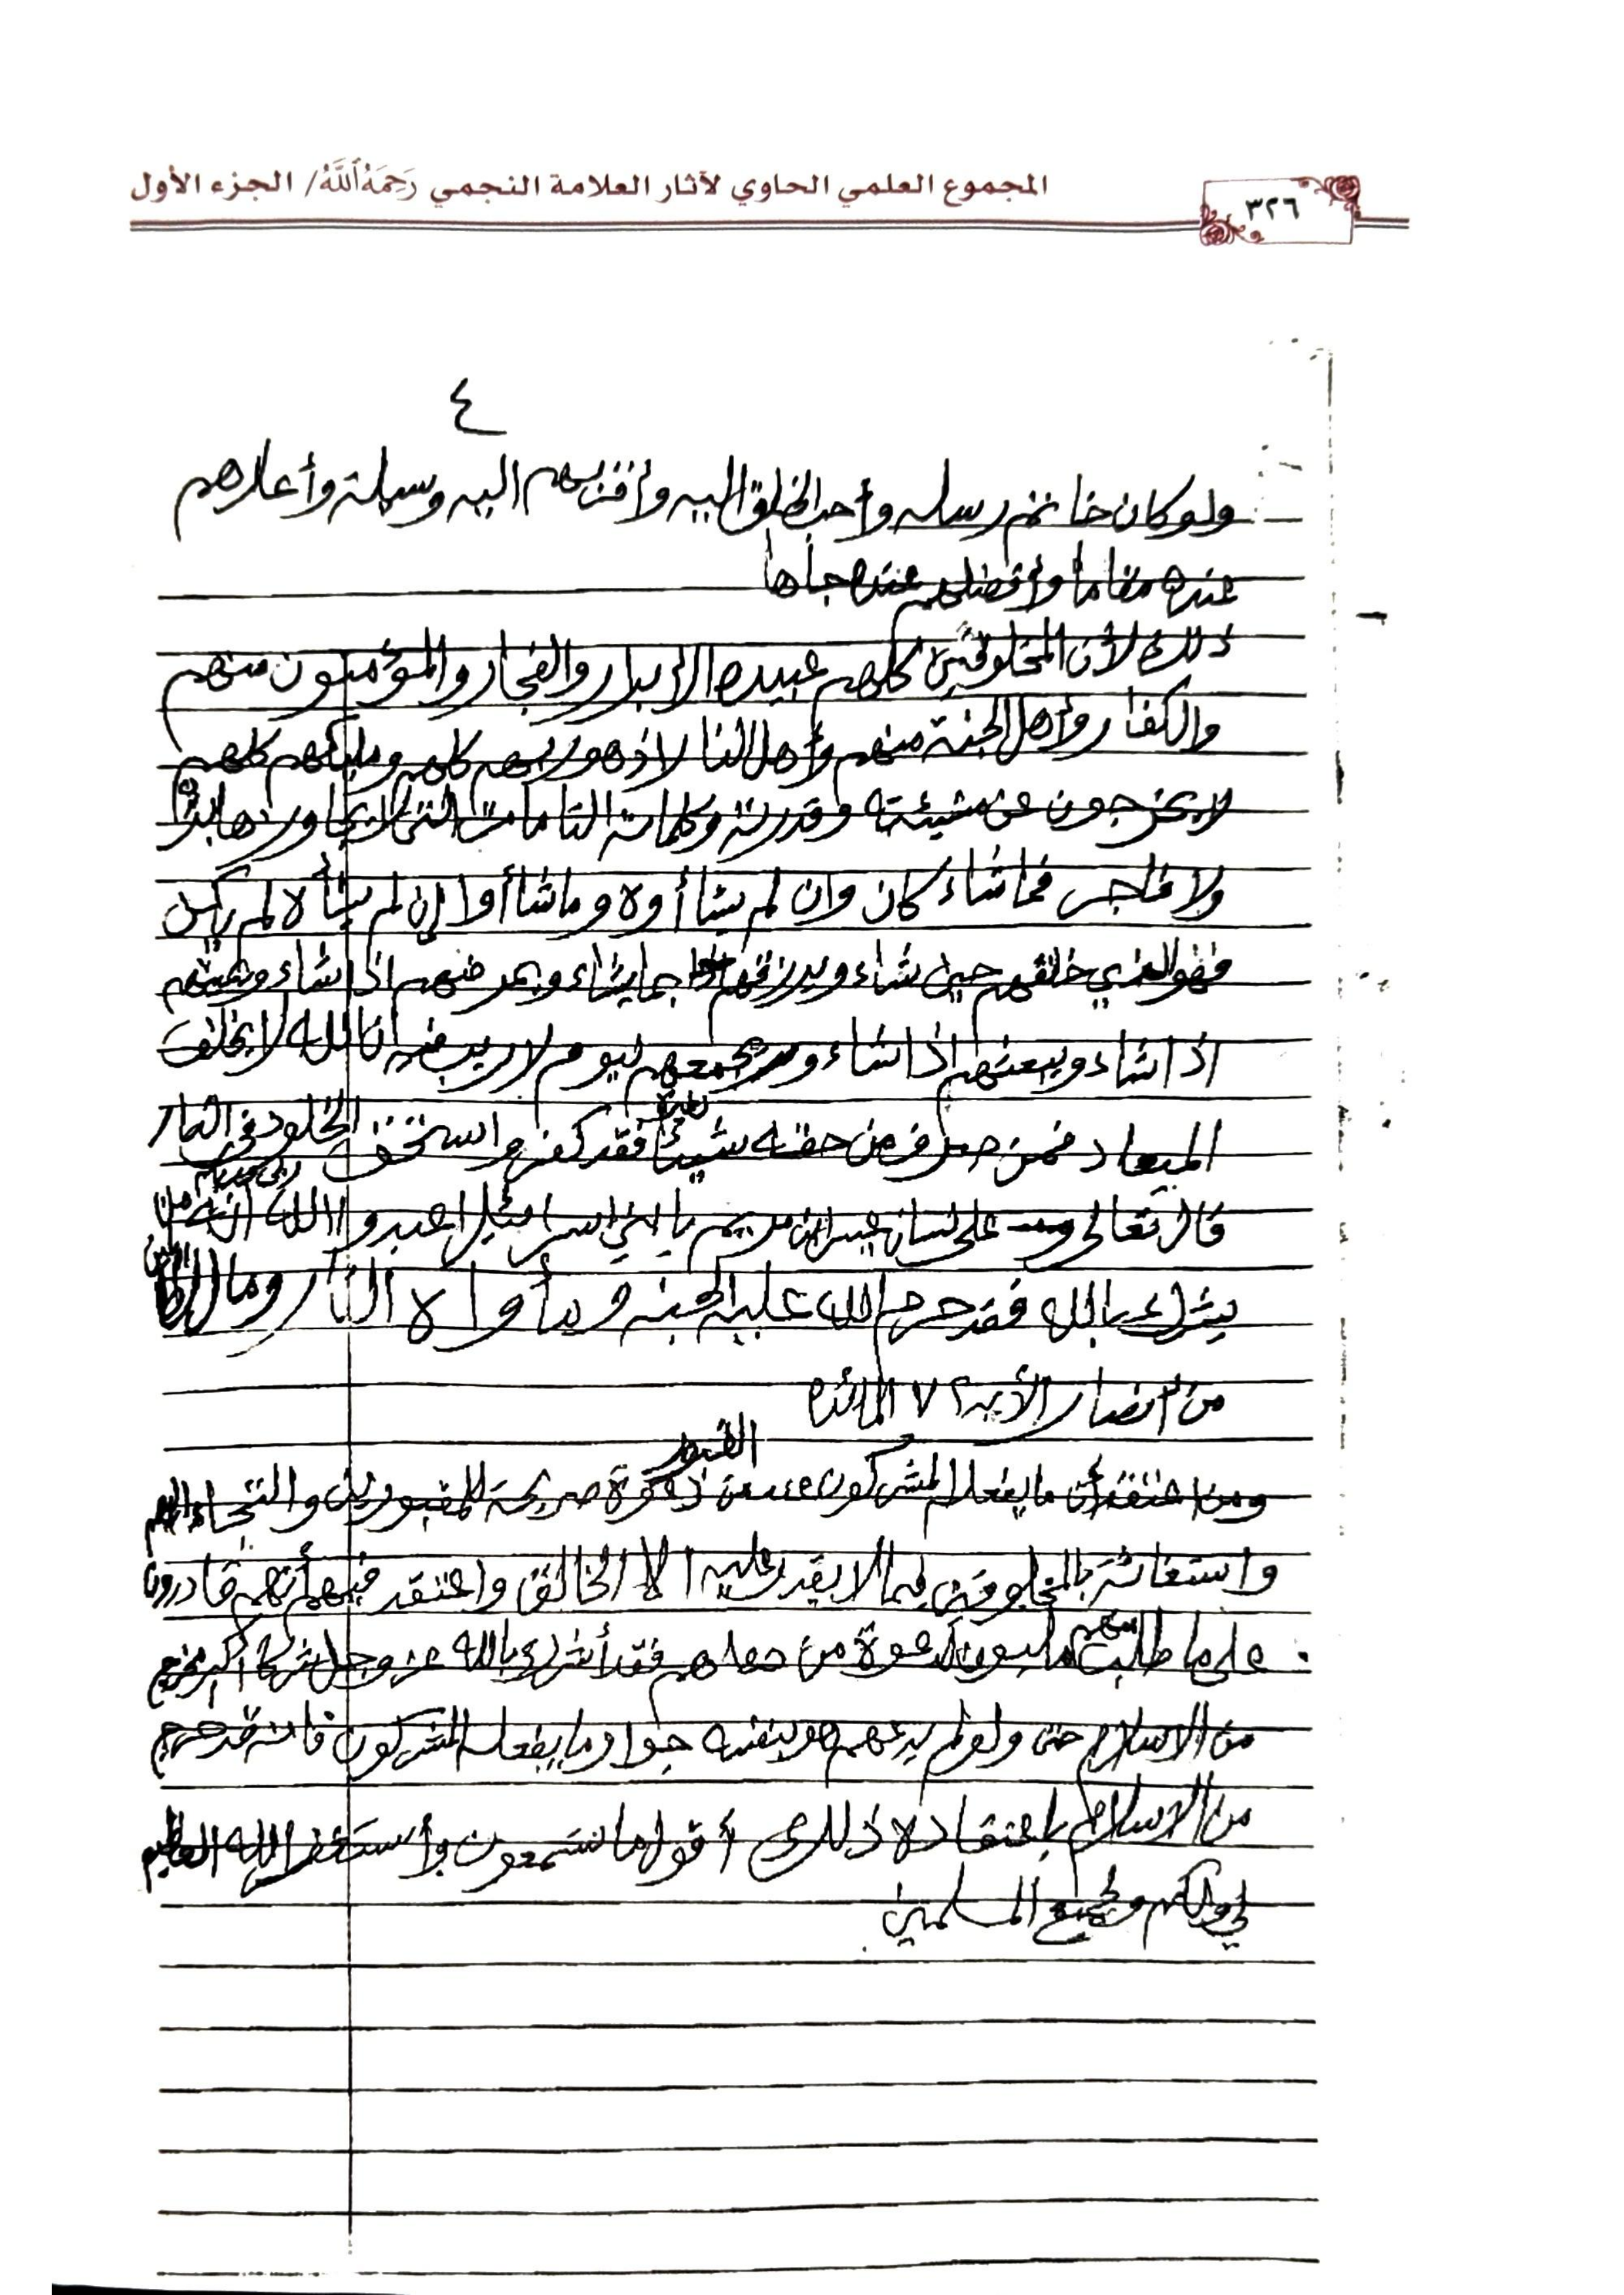 المجموع العلمي الحاوي لآثار العلامة النجمي رَحِمَهُ ٱللَّهُ/ الجزء الأول
٣٢٦
٤
ولو كان خاتم رسله وأحب الخلق اليه وأقربهم اليه وسيلة وأعلاهم
عنده مقاما وأفضلهم عنده جاها
ذلك لأن المخلوقين كلهم عبيده الأبرار والفجار والمؤمنون منهم
والكفار وأهل الجنة منهم وأهل النار اذ هو ربهم كلهم ومليكهم كلهم
لا يخرجون عن مشيئته وقدرته وكلماته التامات التي لا يجاوزها بر
ولا فاجر فما شاء كان وان لم يشاأوه وما شاأوا إن لم يشأه لم يكن
فهو الذي خلقهم حين شاء ويرزقهم بما يشاء ويمرضهم اذا شاء ويميتهم
اذا شاء ويبعثهم اذا شاء ويجمعهم ليوم لا ريب فيه ان الله لا يخلف
الميعاد فمن صرف من حقه شيئا لغيره فقد كفر واستحق الخلود في النار
قال تعالى على لسان عيسى ابن مريم يا بني اسرائيل اعبدوا الله ربي وربكم انه من
يشرك بالله فقد حرم الله عليه الجنة ومأواه النار وما للظالمين
من أنصار الأية ٧٢ المائدة
ومن اعتقد أن ما يفعله المشركون عند القبور من دعوة صريحة للمقبورين والتجاء اليهم
واستغاثة بالمخلوقين فيما لا يقدر عليه الا الخالق واعتقد فيهم أنهم قادرون
على ما طلب منهم يلبون دعوة من دعاهم فقد أشرك بالله عز وجل شركا أكبر مخرج
من الاسلام حتى ولو لم يدعهم هو بنفسه جواز ما يفعله المشركون فانه قد خرج
من الاسلام باعتقاده ذلك أقول ما تسمعون وأستغفر الله العظيم
لي ولكم ولجميع المسلمين